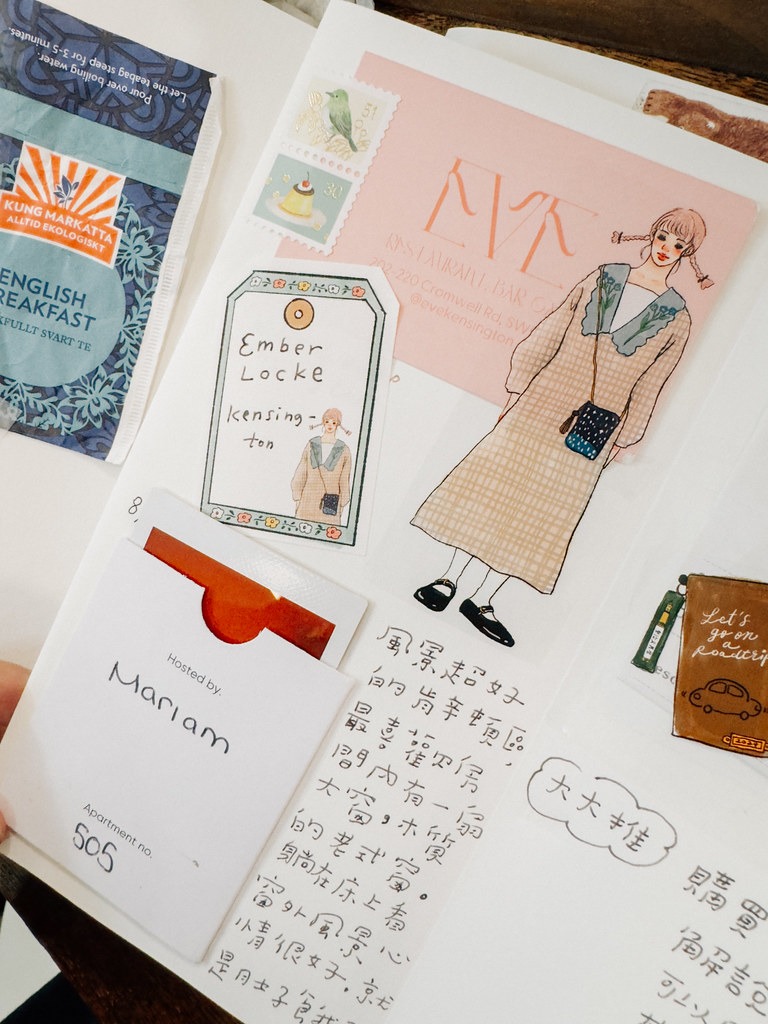 Pour over boiling water.
Let the teabag steep for 3-5 minutes.
KUNG MARKATTA
ALLTID EKOLOGISKT
ENGLISH
BREAKFAST
KFULLT SVART TE
30
EVE
RESTAURANT BAR
202-220 Cromwell Rd, SW
@evekensington
Ember
Locke
Kensing-
ton
8,
Hosted by:
Mariam
Apartment no.
505
風景超好
的肯辛頓區,
最喜歡房
間內有一扇
大窗,木質
的老式窗。
躺在床上看
窗外風景心
情很好.就
是肚子餓
大大推
Let's
go on
a
Roadtrip
購買
解說
可以